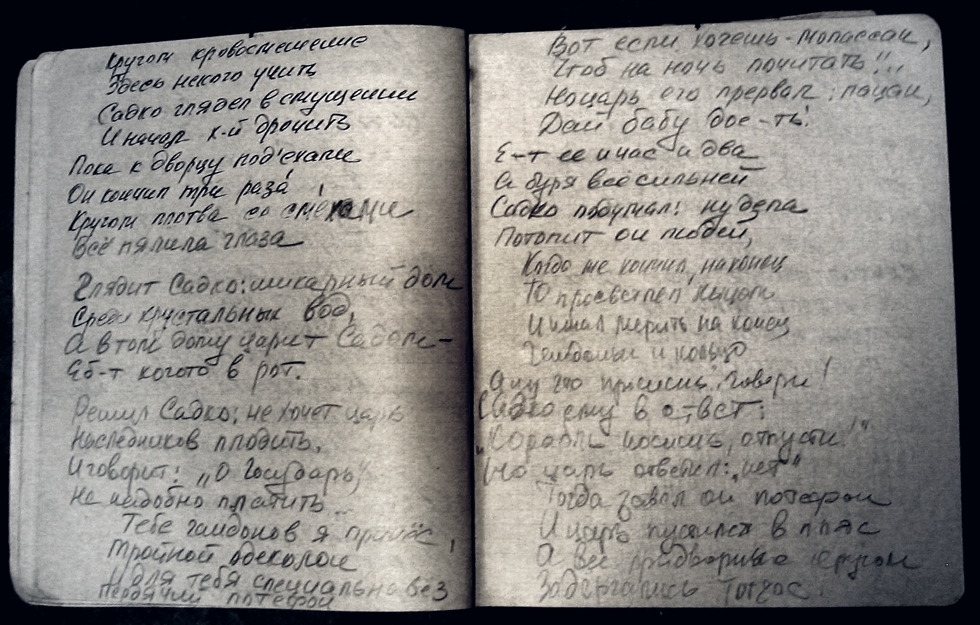 Кругом кровосмешение
Здесь некого учить
Садко глядел в смущении
И начал х-й дрочить
Пока к дворцу под'ехали
Он кончил три раза
Кругом плотва со смехами
Всё пялила глаза
Глядит Садко: шикарный дом
Среди хрустальных вод,
А в том дому царит Садом-
Еб-т когото в рот.
Решил Садко: не хочет царь
Наследников плодить,
И говорит: „О Государь,
Не надобно платить
Тебе гандонов я привёз,
Тройной одеколон
И для тебя специально вёз
патефон
Вот если хочешь-Мопассан,
Чтоб на ночь почитать!!..
Но царь его прервал: пацан,
Дай бабу дое-ть!
Е-т ее и час и два
А буря всё сильней
Садко подумал: ну дела
Потопит он людей,
Когда же кончил, наконец
То просветлел лицом
И стал мерить на конец
Гандоны и кольцо
А ну что просишь, говори!
Садко ему в ответ:
„Корабль носишь, отпусти!"
Но царь ответил: „нет"
Тогда завёл он патефон
И царь пустился в пляс
А все придворные кругом
Задёргались тотчас